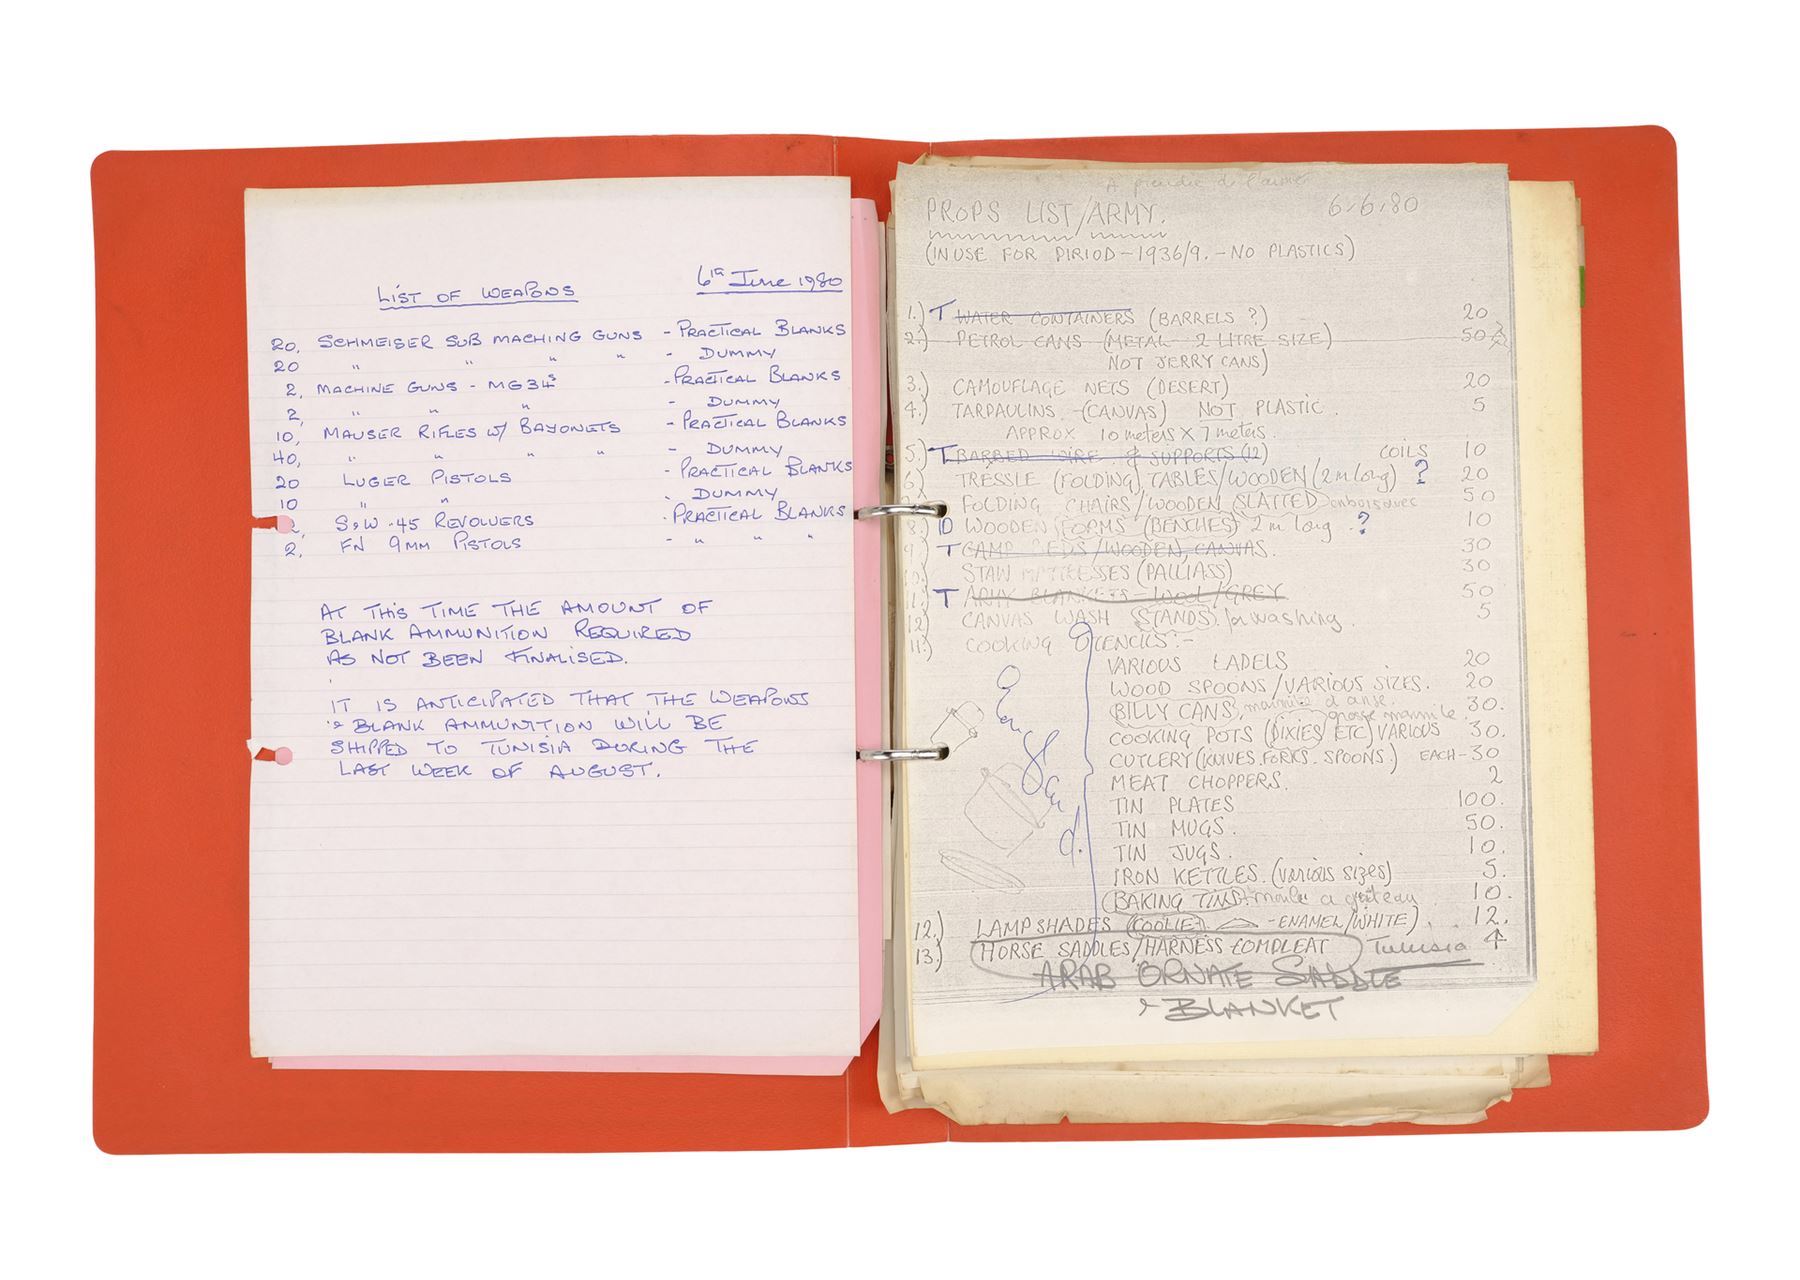 LIST OF WEAPONS 6th June 1980
20, SCHMEISER SUB MACHING GUNS - PRACTICAL BLANKS
20 " " " " - DUMMY
2, MACHINE GUNS - MG34s - PRACTICAL BLANKS
2, " " " - DUMMY
10, MAUSER RIFLES W/ BAYONETS - PRACTICAL BLANKS
40, " " " " - DUMMY
20 LUGER PISTOLS - PRACTICAL BLANKS
10 " " - DUMMY
2, S&W .45 REVOLVERS - PRACTICAL BLANKS
2, FN 9MM PISTOLS - " " "
AT THIS TIME THE AMOUNT OF
BLANK AMMUNITION REQUIRED
AS NOT BEEN FINALISED.
IT IS ANTICIPATED THAT THE WEAPONS
& BLANK AMMUNITION WILL BE
SHIPPED TO TUNISIA DURING THE
LAST WEEK OF AUGUST.
A prendre de l'armée
PROPS LIST/ARMY. 6.6.80
(IN USE FOR PIRIOD - 1936/9. - NO PLASTICS)
1.) T WATER CONTAINERS (BARRELS ?) 20
2.) PETROL CANS (METAL 2 LITRE SIZE) 50
NOT JERRY CANS)
3.) CAMOUFLAGE NETS (DESERT) 20
4.) TARPAULINS - (CANVAS) NOT PLASTIC. 5
APPROX 10 meters X 7 meters.
5.) T BARBED WIRE & SUPPORTS (12) COILS 10
6.) TRESSLE (FOLDING) TABLES/WOODEN (2m long) ? 20
FOLDING CHAIRS/WOODEN SLATTED 50
8.) D WOODEN (FORMS (BENCHES) 2 m long . ? 10
9.) T CAMP BEDS/WOODEN, CANVAS. 30
10.) STAW MATTRESSES (PALLIASS) 30
11.) T ARMY BLANKETS - WOOL/GREY 50
12.) CANVAS WASH STANDS. for washing. 5
11.) COOKING UTENCIES :-
VARIOUS LADELS 20
WOOD SPOONS/VARIOUS SIZES. 20
(BILLY CANS, marmite à anse. 30.
grosse marmite
COOKING POTS (DIXIES ETC) VARIOUS 30.
CUTLERY (KNIVES. FORKS. SPOONS.) EACH - 30
MEAT CHOPPERS. 2
TIN PLATES 100.
TIN MUGS. 50.
TIN JUGS. 10.
IRON KETTLES. (various sizes) 5.
(BAKING TINS. moule a gateau 10.
England.
12.) LAMPSHADES (COOLIE) - ENAMEL/WHITE) 12.
13.) HORSE SADDLES/HARNESS COMPLEAT Tunisia 4
ARAB ORNATE SADDLE
& BLANKET